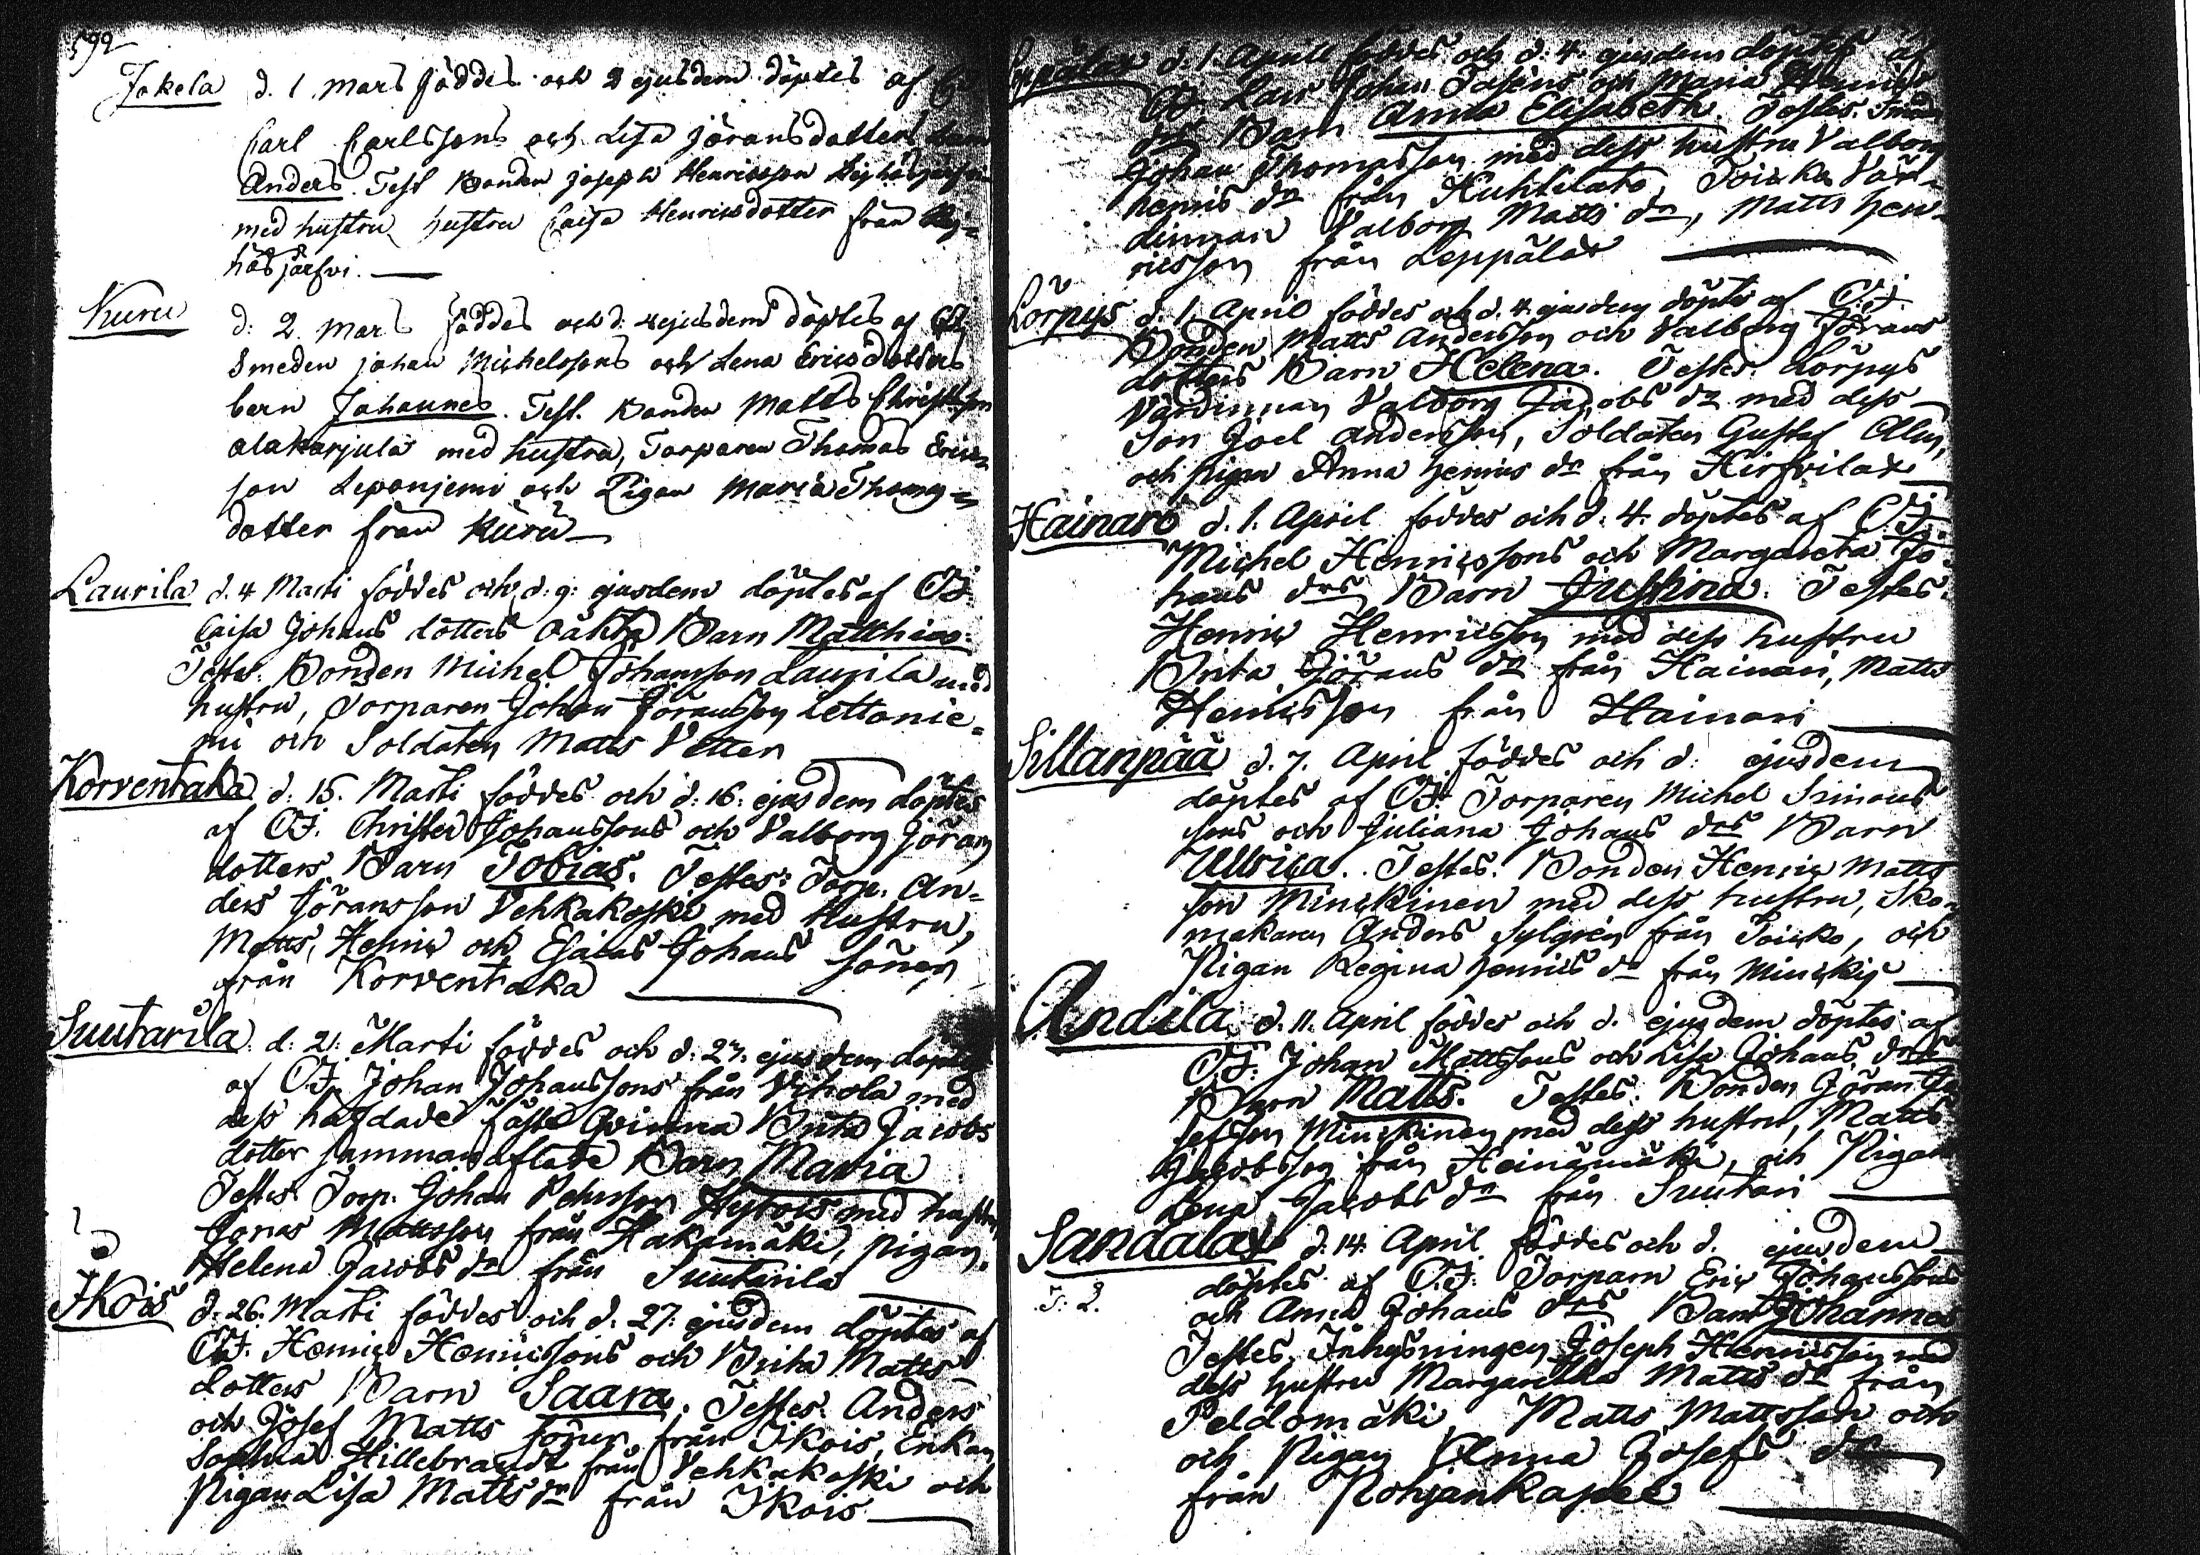 592
Jokela d. 1 Mars föddes och 2 ejusdem döptes af
Carl Carlssons och Lisa Jöransdotters
Anders. Test. Bonden Joseph Henricsson
med hustru, hustru Caisa Henricsdotter från
häsjärfvi.
Kuru d. 2 Mars föddes och d. 4 ejusdem döptes af CF.
Smeden Johan Michelssons och Lena Ericsdotters
barn Johannes. Test. Bonden Matts Christersson
alakarjula med hustru, Torparen Thomas Erics-
son Leponjemi och Pigan Maria Thomæ-
dotter från Kuru
Laurila d. 4 Marti föddes och d. 9. ejusdem döptes af CF.
Caisa Johans dotters oäkta Barn Matthias.
Testes. Bonden Michel Johansson Laurila med
hustru, Torparen Johan Jöransson Lettonie-
mi och Soldaten Matts Vetter
Korventaka d. 15. Marti föddes och d. 16. ejusdem döptes
af CF. Christer Johanssons och Valborg Jörans
dotters Barn Tobias. Testes: Torp. An-
ders Jöransson Vehkakoski med Hustru,
Matts, Henric och Esaias Johans söner
från Korventaka
Suutarila d. 21. Marti föddes och d. 27. ejusdem döptes
af CF. Johan Johanssons från Vihola med
dess häfdade fäste Qvinna Brita Jacobs
dotter sammanaflade Barn Maria
Testes Torp. Johan Pehrsson Hytois med hustru
Jonas Mattsson från Hakamäki, pigan
Helena Jacobs dr från Suutarila
Ikois d. 26. Marti föddes och d. 27. ejusdem döptes af
CF. Henric Henricssons och Brita Matts
dotters Barn Saara. Testes. Anders
och Josef Matts söner från Ikois, Enkan
Sophia Hillebrandt från Vehkakoski och
Pigan Lisa Matts dr från Ikois
Leppälax d. 1. April föddes och d. 4. ejusdem döptes af
CF Lars Johan och Maria
Barn Anna Elisabeth. Testes.
Johan Thomasson med dess hustru Valborg
henrics dr från Huhtilato, Toicka Vär-
dinnan Valborg Matts dr, Matts Hen-
ricsson från Leppälax
Lörpys d. 1. April föddes och d. 4. ejusdem döptes af C.F.
Bonden Matts Andersson och Valborg Jörans
dotters Barn Helena. Testes. Lörpys
Värdinnan Valborg Jacobs dr med dess
Son Joel Andersson, Soldaten Gustaf Alm,
och pigan Anna Henrics dr från Hirfvilax
Hainaro d. 1. April föddes och d. 4. döptes af C.F.
Michel Henricssons och Margareta Jo-
hans drs Barn Justina. Testes.
Henric Henricsson med dess hustru
Brita Jörans dr från Hainari, Matts
Henricsson från Hainari
Sillanpää d. 7. April föddes och d. ejusdem
döptes af CF. Torparen Michel Simons
sons och Juliana Johans drs Barn
Ullrica. Testes. Bonden Henric Matts
son Minckinen med dess hustru, Sko-
makaren Anders Sylgrén från Toicko, och
Pigan Regina Henrics dr från Minckis
Andila d. 11. April föddes och d. ejusdem döptes af
CF. Johan Mattssons och Lisa Johans drs
Barn Matts. Testes. Bonden Jöran Jo-
sefsson Minckinen med dess hustru, Matts
Jacobsson från Heinämäki, och Pigan
Lena Jacobs dr från Suutari
Sandalax d. 14. April föddes och d. ejusdem
döptes af C.F. Torparn Eric Johanssons
och Anna Johans drs Barn Johannes
Testes, Inhysningen Joseph Henricsson med
dess hustru Margaretha Matts dr från
Peldomäki Matts Mattsson och
och Pigan Anna Josefs dr
från Rohjankapee